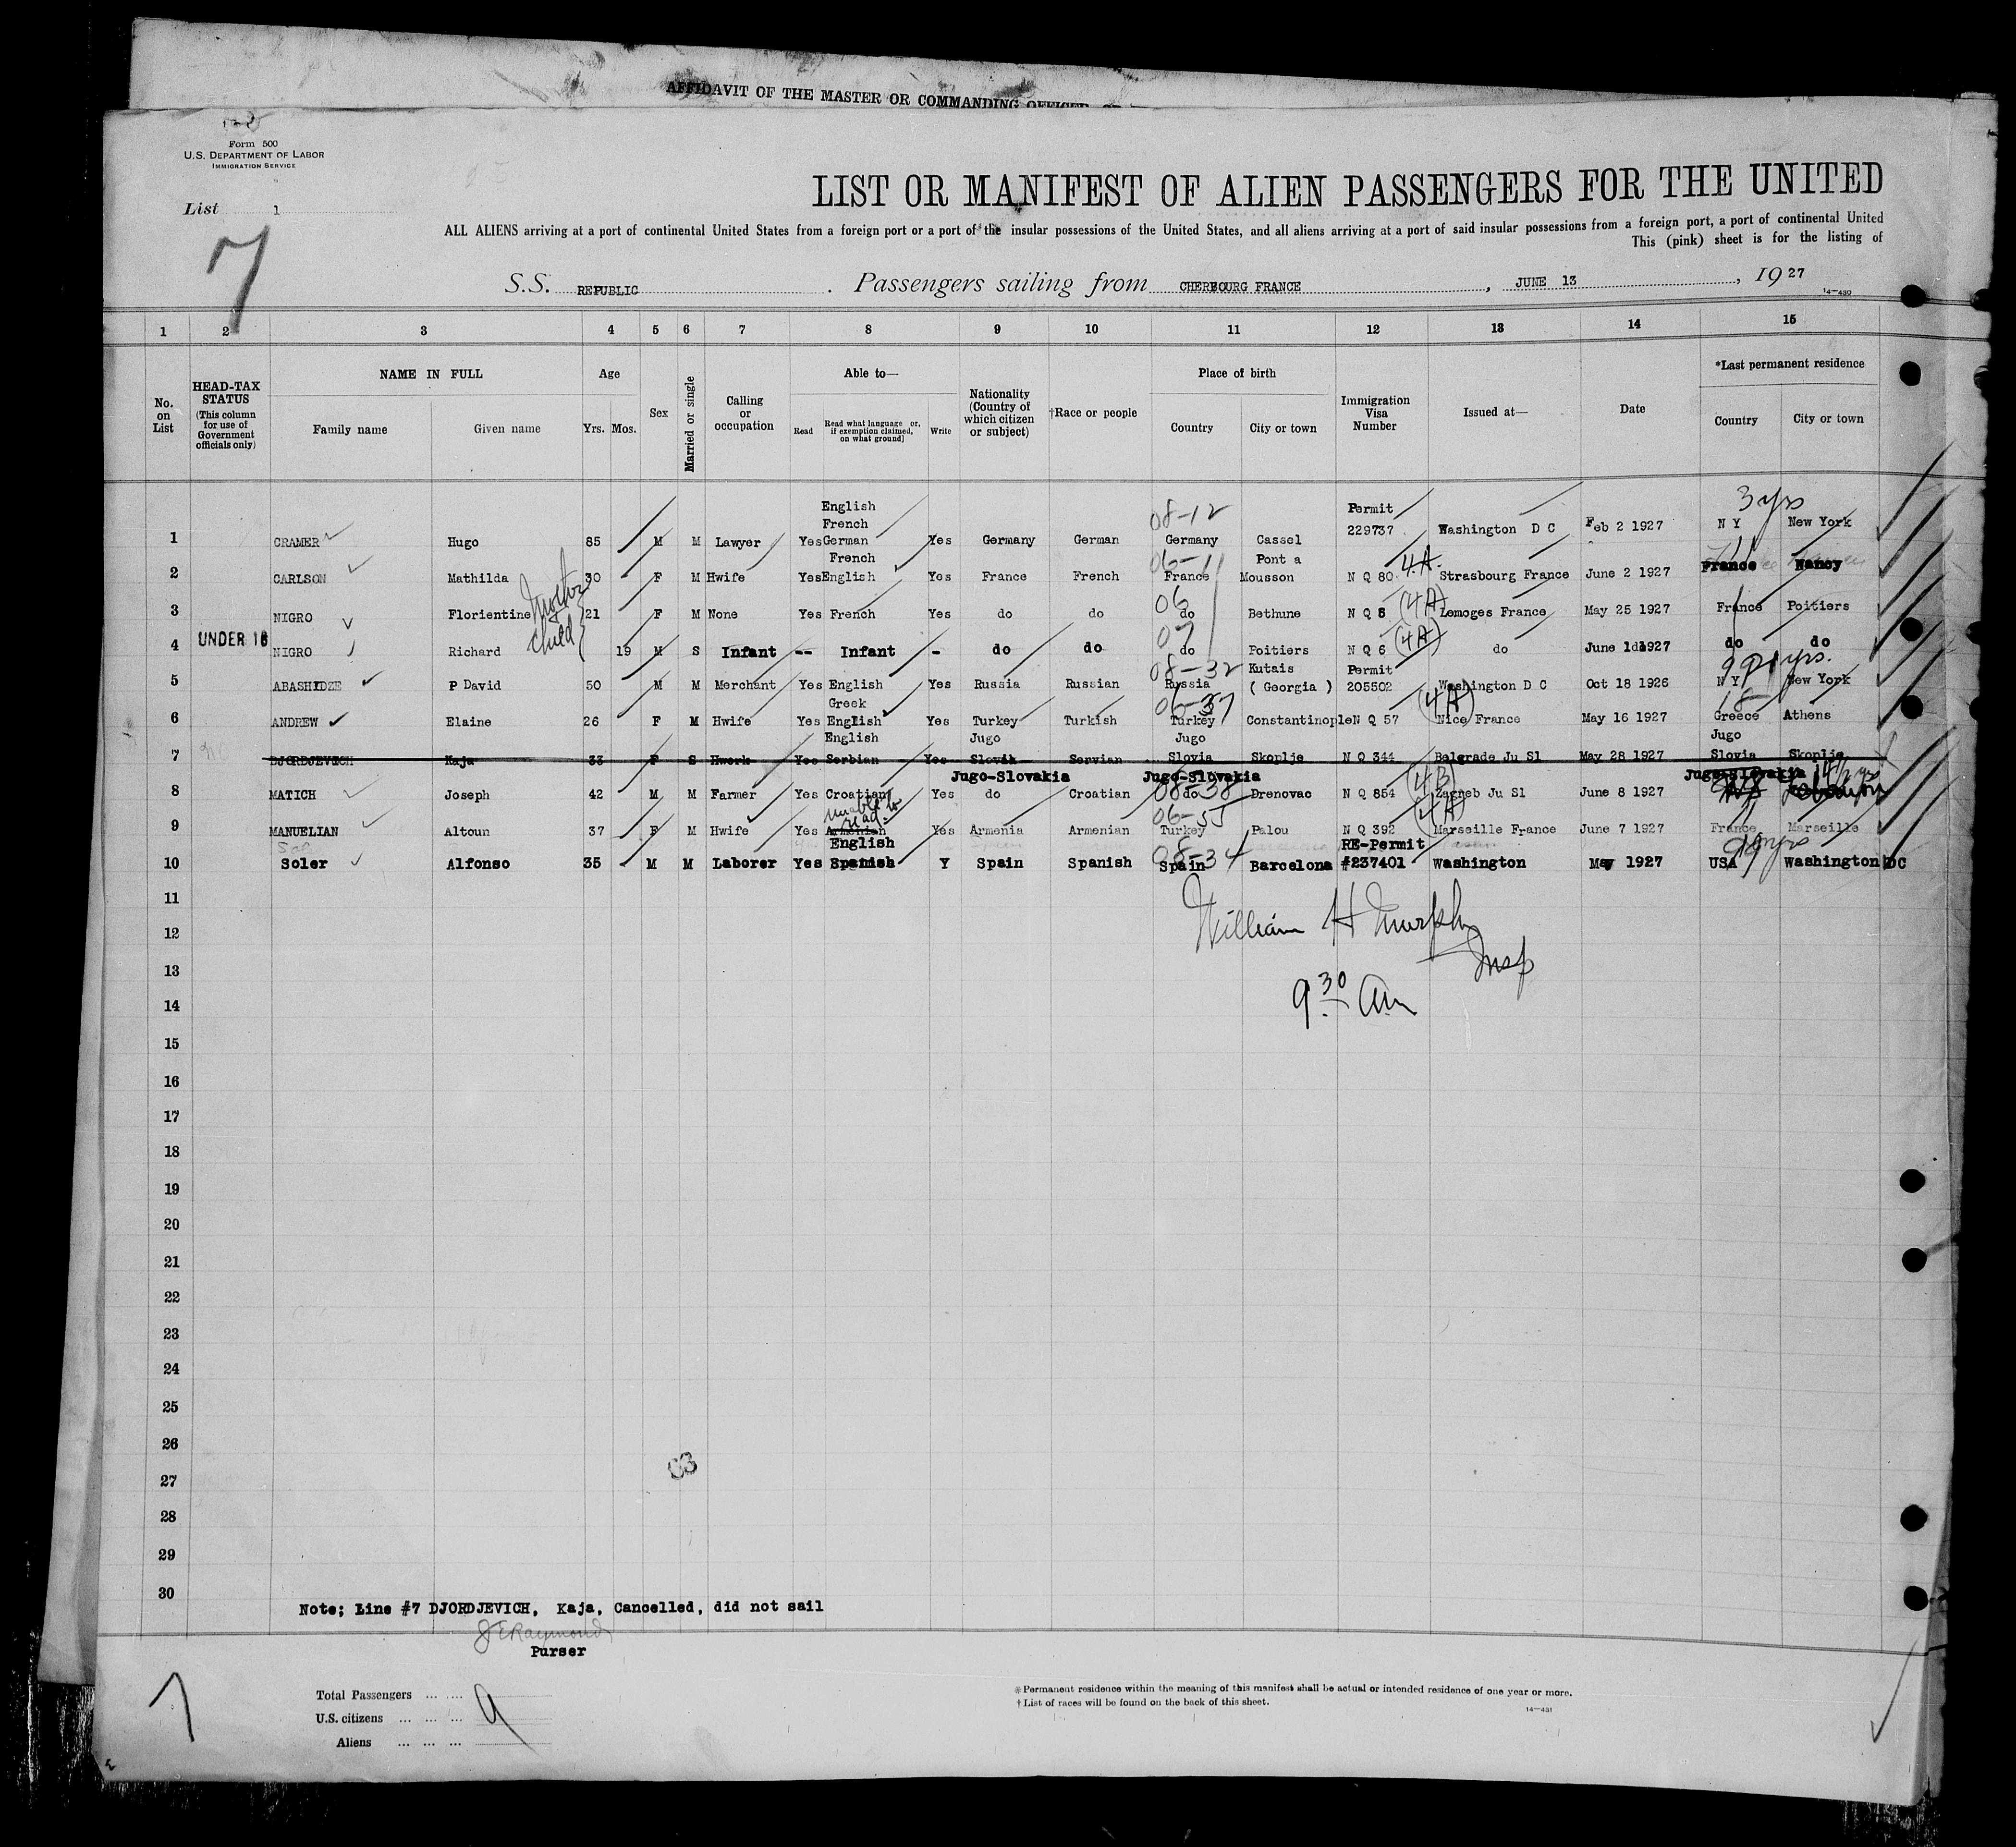 AFFIDAVIT OF THE MASTER OR COMMANDING OFFICER
Form 500
U.S. DEPARTMENT OF LABOR
IMMIGRATION SERVICE
List 1
7
LIST OR MANIFEST OF ALIEN PASSENGERS FOR THE UNITED
ALL ALIENS arriving at a port of continental United States from a foreign port or a port of the insular possessions of the United States, and all aliens arriving at a port of said insular possessions from a foreign port, a port of continental United
This (pink) sheet is for the listing of
S.S. REPUBLIC . Passengers sailing from CHERBOURG FRANCE , JUNE 13 , 19 27
14—430
1 2 3 4 5 6 7 8 9 10 11 12 13 14 15
No. on List
HEAD-TAX STATUS (This column for use of Government officials only)
NAME IN FULL Family name Given name
Age Yrs. Mos.
Sex
Married or single
Calling or occupation
Able to— Read Read what language or, if exemption claimed, on what ground] Write
Nationality (Country of which citizen or subject)
†Race or people
Place of birth Country City or town
Immigration Visa Number
Issued at—
Date
*Last permanent residence Country City or town
English Permit 3 yrs
French 08-12
1 CRAMER Hugo 85 M M Lawyer Yes German Yes Germany German Germany Cassel 229737 Washington D C Feb 2 1927 N Y New York
French 06- Pont a 4.A.
2 CARLSON Mathilda 30 F M Hwife Yes English Yes France French France Mousson N Q 80 Strasbourg France June 2 1927 France Nancy
Mother 06 (4A)
3 NIGRO Florientine 21 F M None Yes French Yes do do do Bethune N Q 5 Lemoges France May 25 1927 France Poitiers
child 07 (4A)
4 UNDER 16 NIGRO Richard 19 M S Infant -- Infant - do do do Poitiers N Q 6 do June 1 1927 do do
08-32 Kutais Permit yrs.
5 ABASHIDZE P David 50 M M Merchant Yes English Yes Russia Russian Russia ( Georgia ) 205502 Washington D C Oct 18 1926 N Y New York
Greek 06-37 (4A) 18
6 ANDREW Elaine 26 F M Hwife Yes English Yes Turkey Turkish Turkey Constantinople N Q 57 Nice France May 16 1927 Greece Athens
English Jugo Jugo Jugo
7 DJORDJEVICH Kaja 33 F S Hwork Yes Serbian Yes Slovik Servian Slovia Skoplje N Q 344 Belgrade Ju Sl May 28 1927 Slovia Skoplje
Jugo-Slovakia Jugo-Slovakia Jugo-Slovakia
08-38 (4B)
8 MATICH Joseph 42 M M Farmer Yes Croatian Yes do Croatian do Drenovac N Q 854 Zagreb Ju Sl June 8 1927
unable to read 06-55 (4A)
9 MANUELIAN Altoun 37 F M Hwife Yes Armenian Yes Armenia Armenian Turkey Palou N Q 392 Marseille France June 7 1927 France Marseille
English 08-34 RE-Permit
10 Soler Alfonso 35 M M Laborer Yes Spanish Y Spain Spanish Spain Barcelona #237401 Washington May 1927 USA Washington DC
11
William H Murphy
12
Insp
13
9 30 Am
14
15
16
17
18
19
20
21
22
23
24
25
26
63
27
28
29
30
Note; Line #7 DJORDJEVICH, Kaja, Cancelled, did not sail
J E Raymond
Purser
Total Passengers
U.S. citizens
Aliens
9
*Permanent residence within the meaning of this manifest shall be actual or intended residence of one year or more.
†List of races will be found on the back of this sheet.
14—431